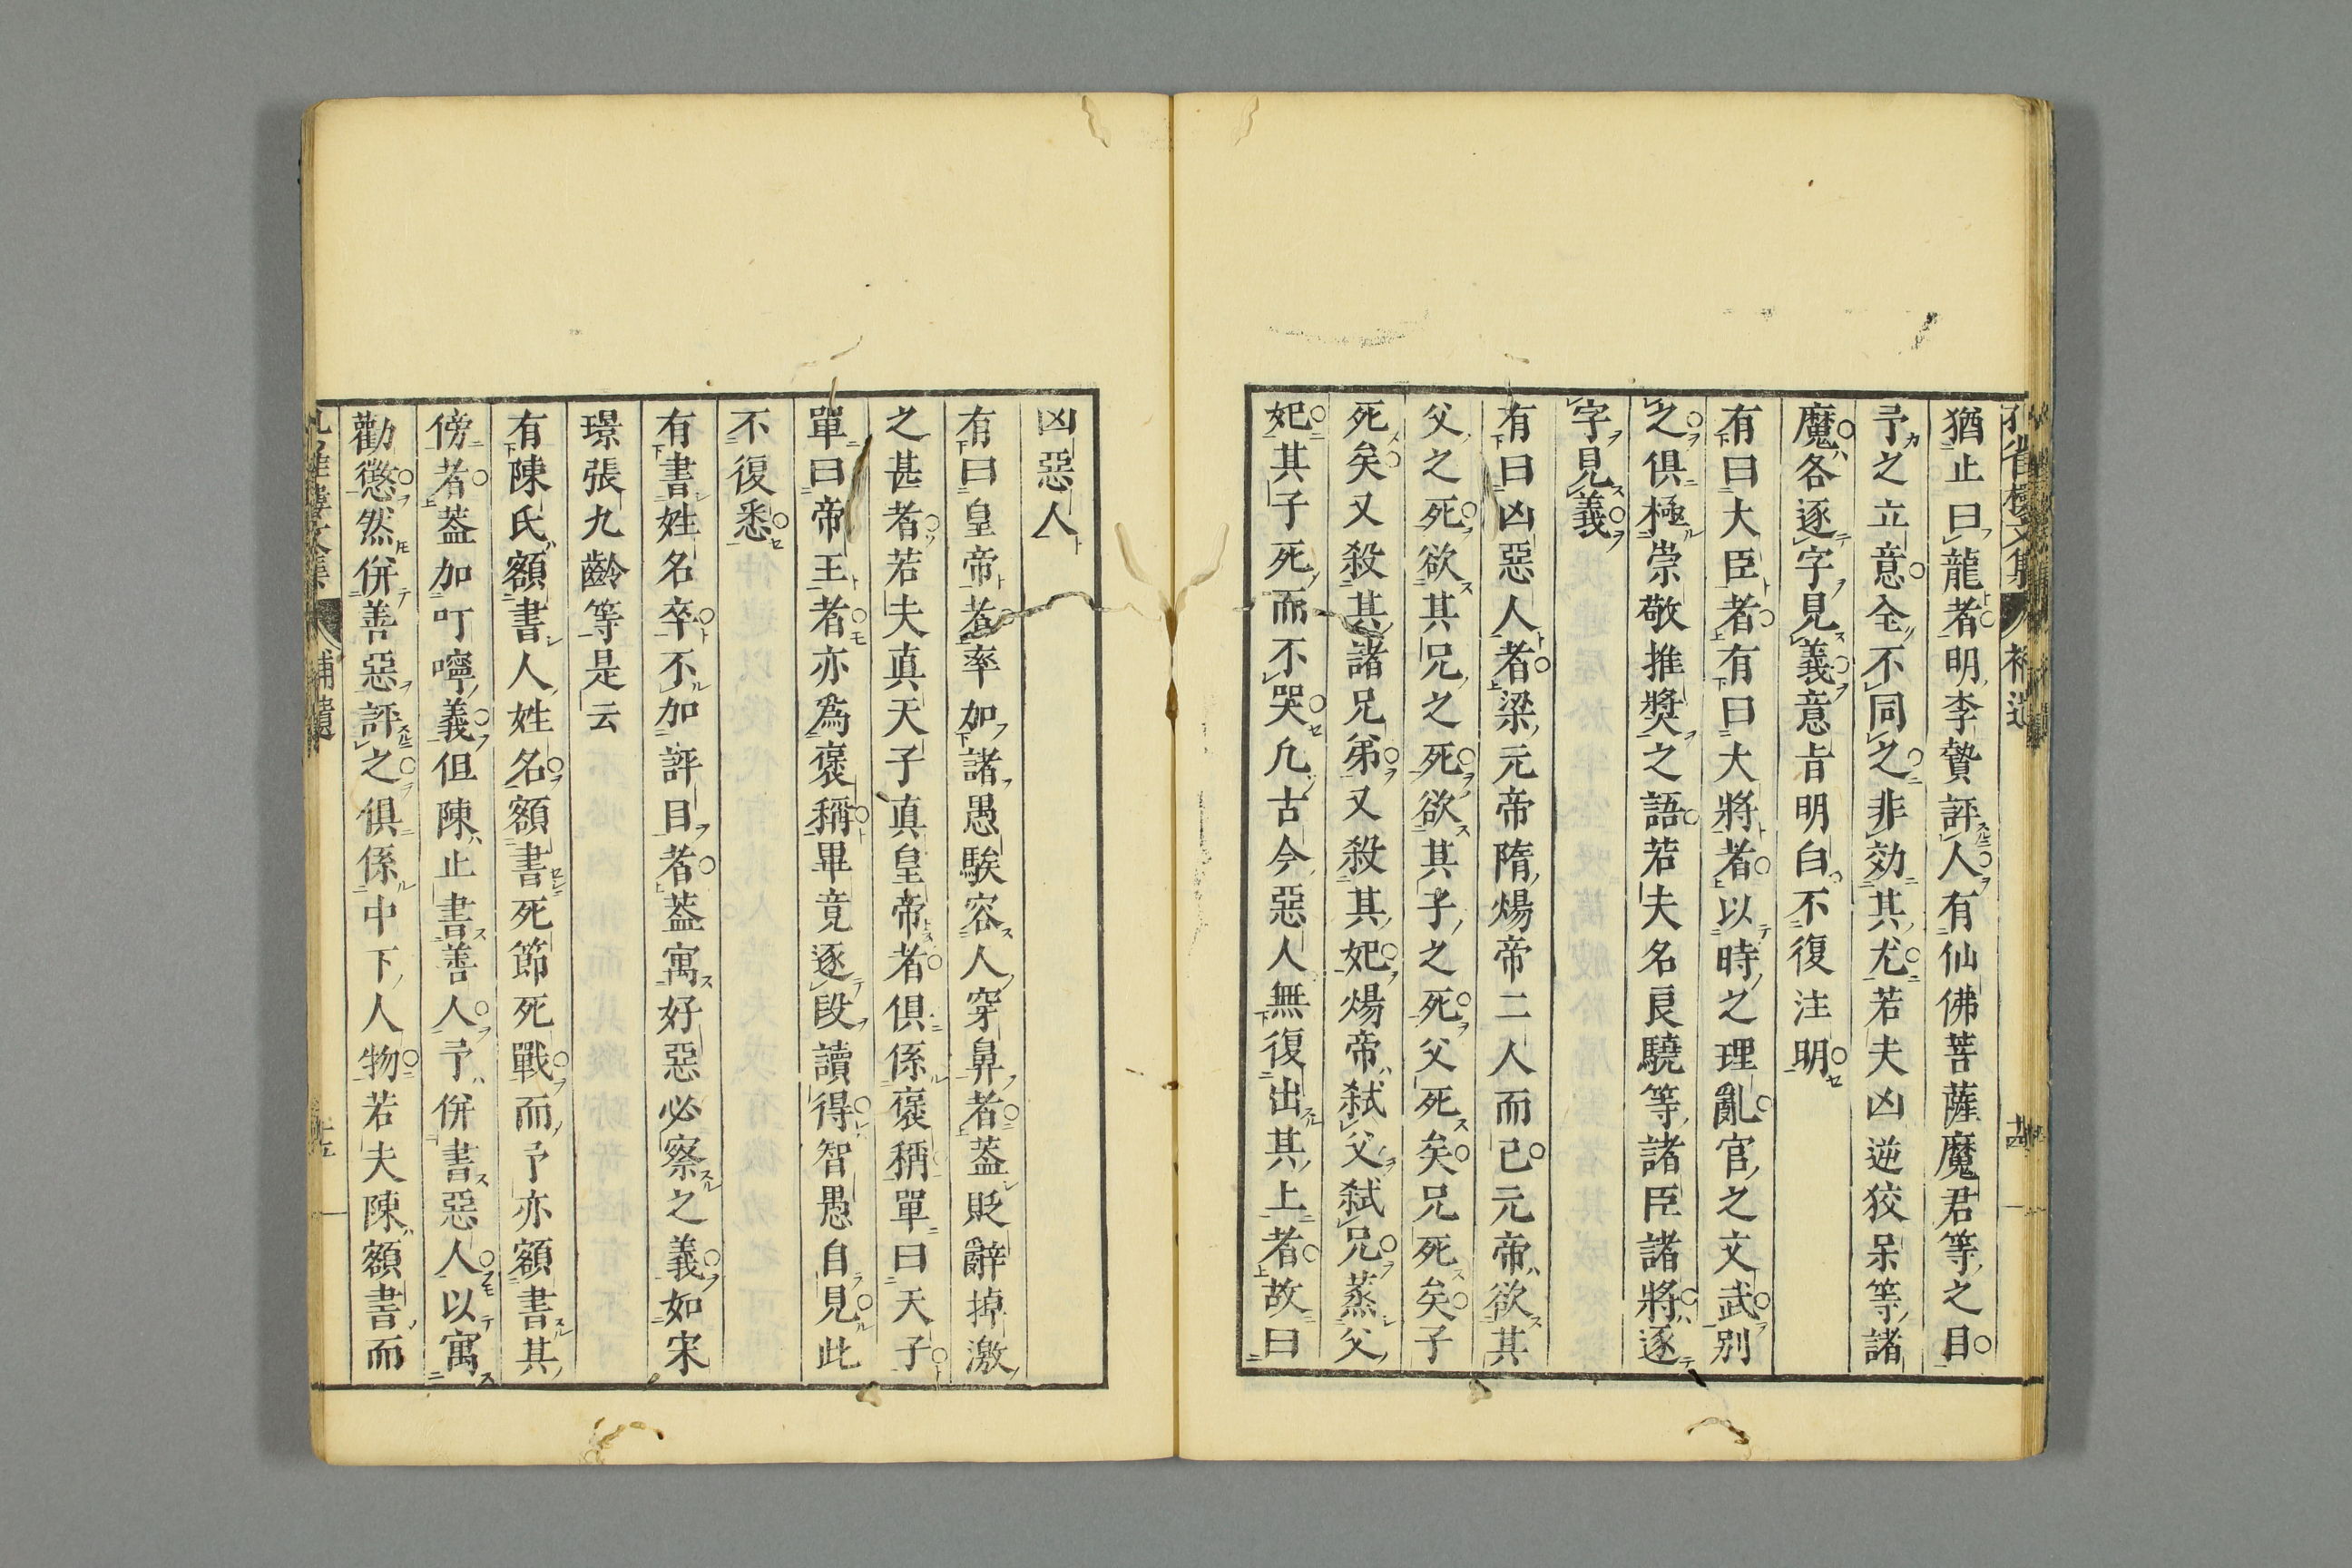 猶止曰龍者明李贄評人有仙佛菩薩魔君等之目
予之立意全不同之非効其尤若夫凶逆狡呆等諸
魔各逐字見義意旨明白不復注明
有曰大臣者有曰大將者以時之理亂官之文武別
之俱極崇敬推獎之語若夫名良驍等諸臣諸將逐
字見義
有曰凶惡人者梁元帝隋煬帝二人而已元帝欲其
父之死欲其兄之死欲其子之死父死矣兄死矣子
死矣又殺其諸兄弟又殺其妃煬帝弑父弑兄蒸父
妃其子死而不哭凢古今惡人無復出其上者故曰
凶惡人
有曰皇帝者率加諸愚騃容人穿鼻者葢貶辭掉激
之甚者若夫真天子真皇帝者俱係褒稱單曰天子
單曰帝王者亦為褒稱畢竟逐段讀得智愚自見此
不復悉
有書姓名卒不加評目者葢寓好惡必察之義如宋
璟張九齡等是云
有陳氏額書人姓名額書死節死戰而予亦額書其
傍者葢加叮嚀義但陳止書善人予併書惡人以寓
勸懲然併善惡評之俱係中下人物若夫陳額書而
補遺